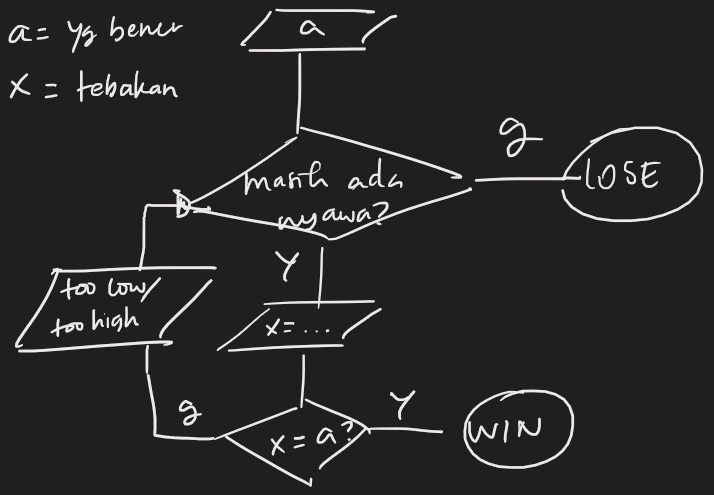 a = yg bener
x = tebakan
a
masih ada
nyawa?
g
LOSE
Y
too low/
too high
x = ...
g
x = a?
Y
WIN